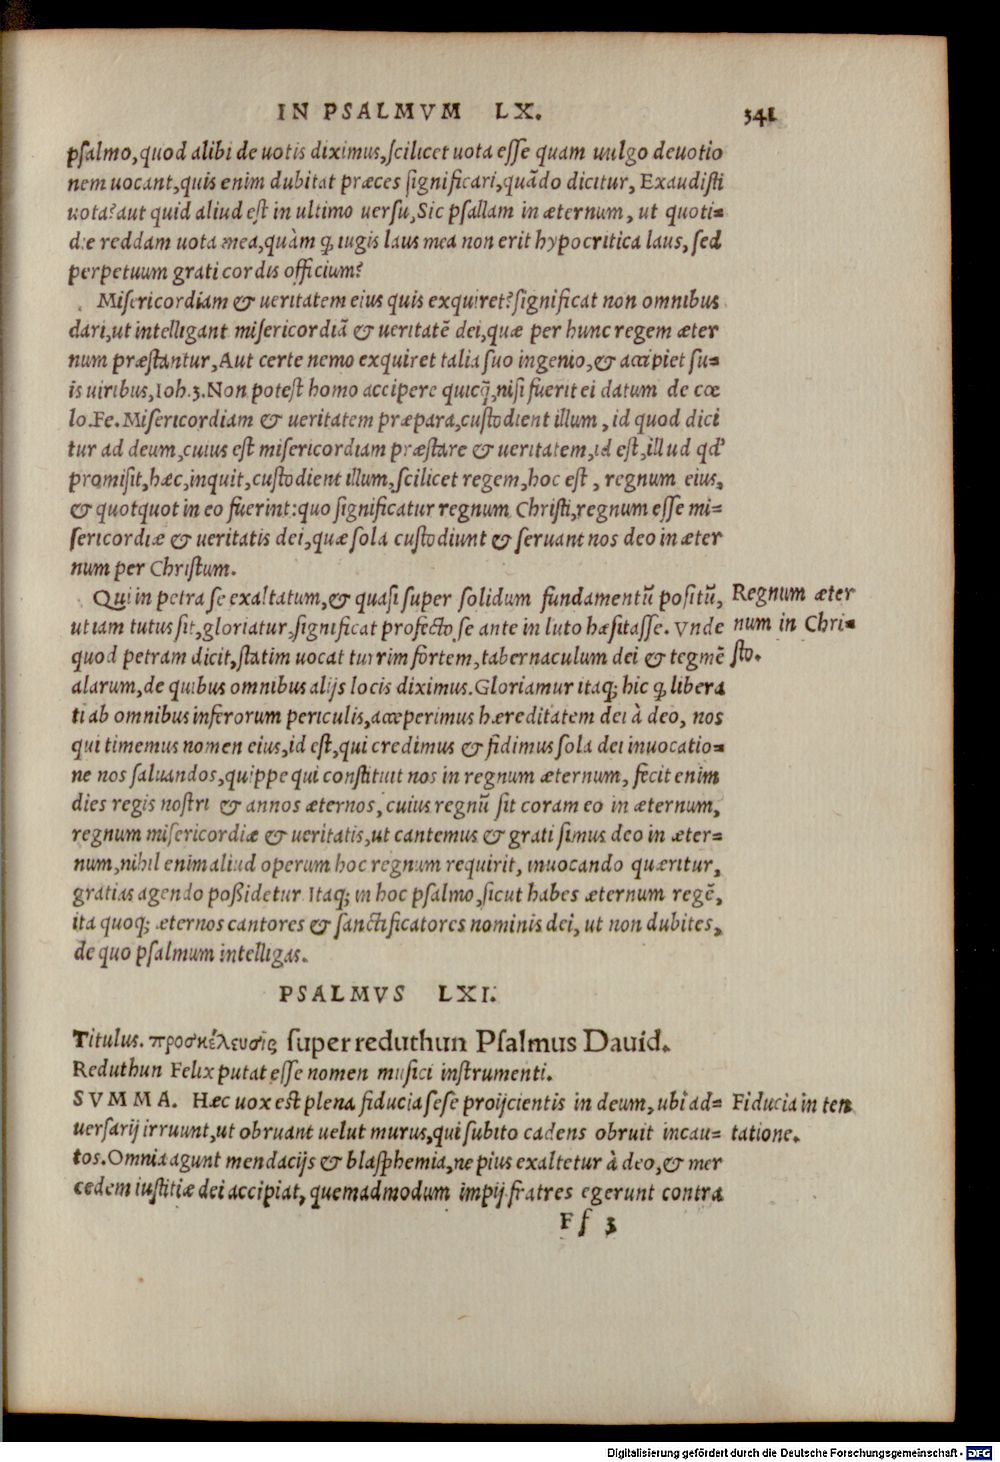 IN PSALMVM LX. 341
psalmo, quod alibi de uotis diximus, scilicet uota esse quam uulgo deuotio
nem uocant, quis enim dubitat præces significari, quãdo dicitur, Exaudisti
uota? aut quid aliud est in ultimo uersu, Sic psallam in æternum, ut quoti=
die reddam uota mea, quàm ꝙ iugis laus mea non erit hypocritica laus, sed
perpetuum grati cordis officium?
Misericordiam & ueritatem eius quis exquiret? significat non omnibus
dari, ut intelligant misericordiã & ueritatẽ dei, quæ per hunc regem æter
num præstantur, Aut certe nemo exquiret talia suo ingenio, & accipiet su=
is uiribus, Ioh. 3. Non potest homo accipere quicq̃, nisi fuerit ei datum de cœ
lo. Fe. Misericordiam & ueritatem præpara, custodient illum, id quod dici
tur ad deum, cuius est misericordiam præstare & ueritatem, id est, illud qd'
promisit, hæc, inquit, custodient illum, scilicet regem, hoc est, regnum eius,
& quotquot in eo fuerint: quo significatur regnum Christi, regnum esse mi=
sericordiæ & ueritatis dei, quæ sola custodiunt & seruant nos deo in æter
num per Christum.
Qui in petra se exaltatum, & quasi super solidum fundamentũ positũ,
ut iam tutus sit, gloriatur, significat profecto se ante in luto hæsitasse. Vnde
quod petram dicit, statim uocat turrim fortem, tabernaculum dei & tegmẽ
alarum, de quibus omnibus alijs locis diximus. Gloriamur itaq; hic ꝙ libera
ti ab omnibus inferorum periculis, acceperimus hæreditatem dei à deo, nos
qui timemus nomen eius, id est, qui credimus & fidimus sola dei inuocatio=
ne nos saluandos, quippe qui constituit nos in regnum æternum, fecit enim
dies regis nostri & annos æternos, cuius regnũ sit coram eo in æternum,
regnum misericordiæ & ueritatis, ut cantemus & grati simus deo in æter=
num, nihil enim aliud operum hoc regnum requirit, inuocando quæritur,
gratias agendo poßidetur Itaq; in hoc psalmo, sicut habes æternum regẽ,
ita quoq; æternos cantores & sanctificatores nominis dei, ut non dubites,
de quo psalmum intelligas.
Regnum æter
num in Chri=
sto.
PSALMVS LXI.
Titulus. προσκέλευσις super reduthun Psalmus Dauid.
Reduthun Felix putat esse nomen musici instrumenti.
SVMMA. Hæc uox est plena fiducia sese proijcientis in deum, ubi ad=
uersarij irruunt, ut obruant uelut murus, qui subito cadens obruit incau=
tos. Omnia agunt mendacijs & blasphemia, ne pius exaltetur à deo, & mer
cedem iustitiæ dei accipiat, quemadmodum impij fratres egerunt contra
Fiducia in ten
tatione.
Ff 3
Digitalisierung gefördert durch die Deutsche Forschungsgemeinschaft - DFG